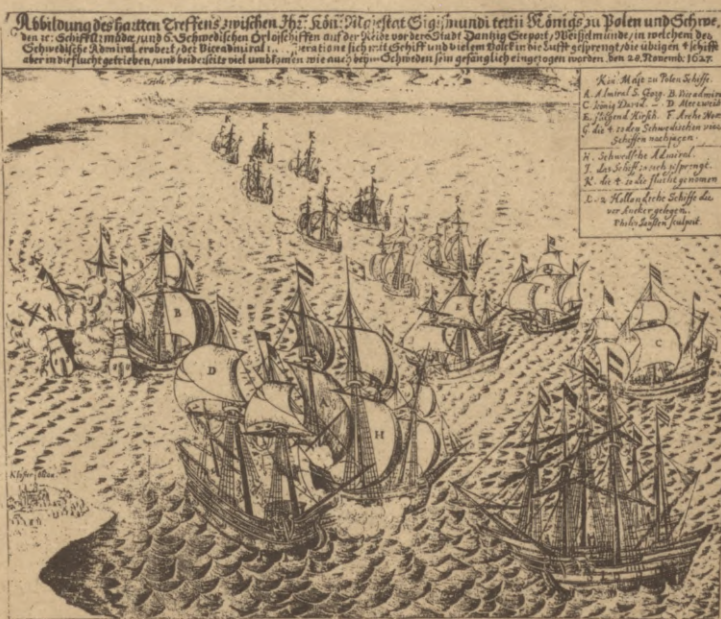 Abbildung des hartten Treffens zwischen Ihr. Kön. Majestat Sigismundi tertii Königs zu Polen und Schwe
den 10: Schiff und 6. Schwedischen Orloßschiffen auf der Reide vor der Stadt Danzig Seeport, Weisselmünde, in welchem der
Schwedische Admiral erobert, der Viceadmiral sich mit Schiff und vielem Volck in die Lufft gesprengt, die übrigen 4 schiff
aber in die flucht getrieben, und beiderseits viel umbkomen wie auch beym Schweden sein gefänglich eingezogen worden. den 28. Novemb: 1627.
Kön: Mayt zu Polen Schiffe.
A. Admiral S. Georg. B. Vice admira
C. König David. D. Meerweib
E. fliegend Hirsch. F. Arche Noe
G. die 4 so den Schwedischen
Schiffen nachjagen.
H. Schwedische Admiral.
I. das Schiff so sich sprengt.
K. die 4. so die flucht genomen
L. 2 Hollandsche Schiffe die
vor Ancker gelegen.
Philip Janßen sculpsit.
K
K
K
K
B
E
C
D
H
Kloster Oliva